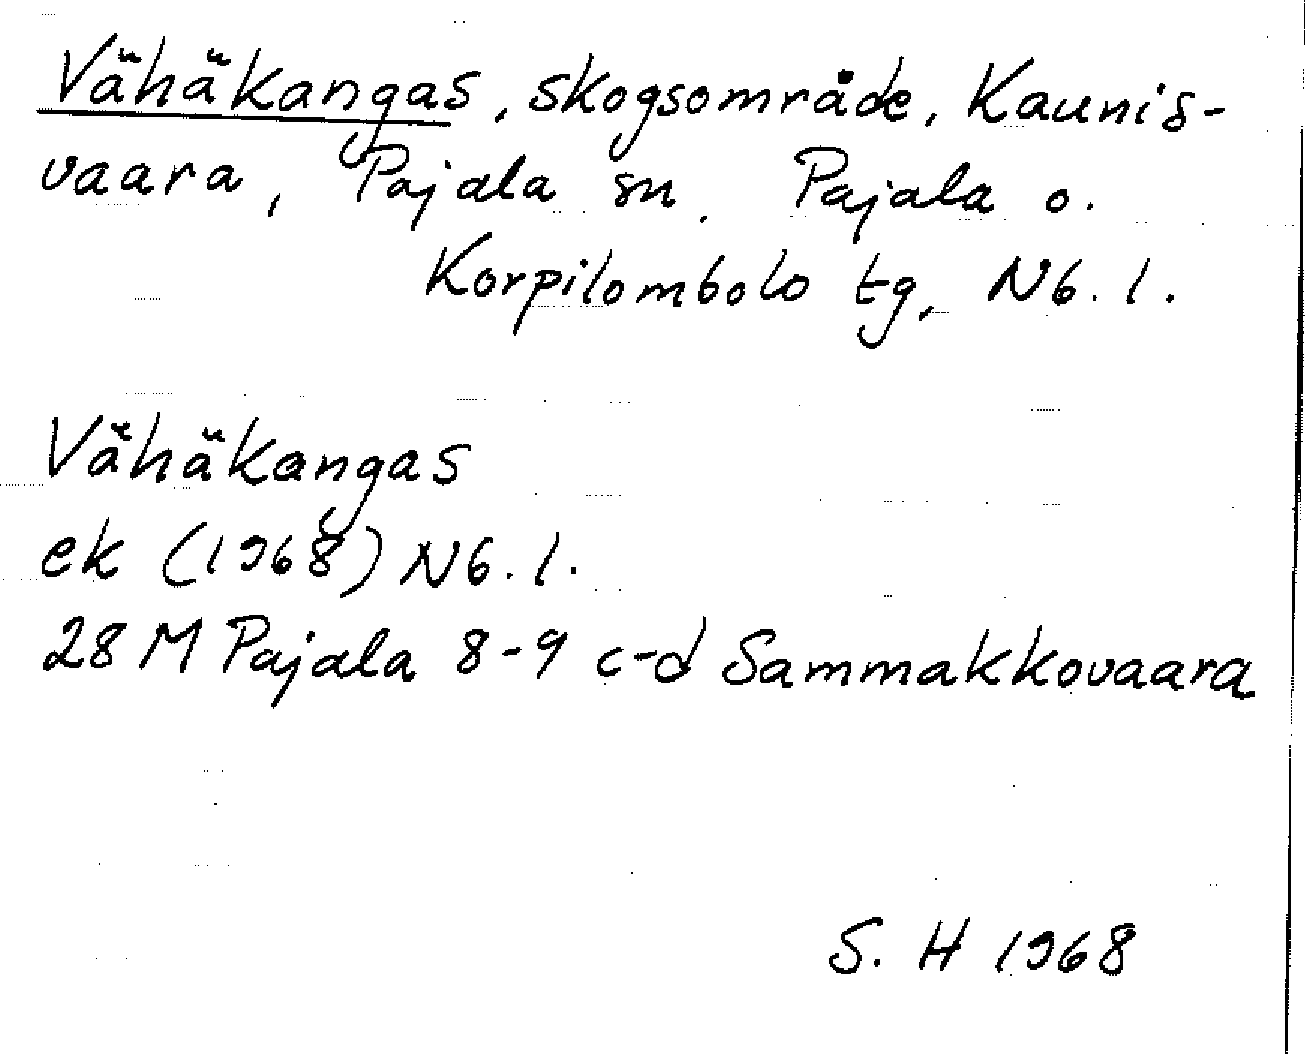 Vähäkangas, skogsområde, Kaunis-
vaara, Pajala sn. Pajala o.
Korpilombolo tg, Nb. l.
Vähäkangas
ek (1968) Nb. l.
28 M Pajala 8-9 c-d Sammakkovaara
S. H 1968